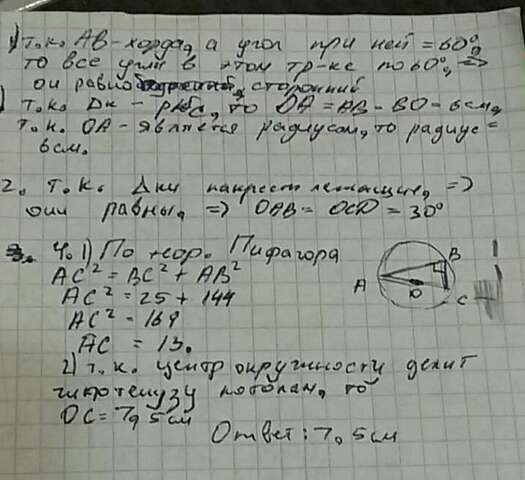 1) т.к. АВ-хорда, а угол при ней = 60°,
то все углы в этом тр-ке по 60°, =>
он равносторонний
) т.к. Δк - р/с, то ОА = АВ = ВО = 6см,
т.к. ОА - является радиусом, то радиус =
6 см.
2. т.к. Δки накрест лежащие, =>
они равны, => ОАВ = OCD = 30°
4. 1) По теор. Пифагора
АС² = ВС² + АВ²
АС² = 25 + 144
АС² = 169
АС = 13.
А В С О
2) т.к. центр окружности делит
гипотенузу пополам, то
ОС = 7,5 см
Ответ: 7,5 см